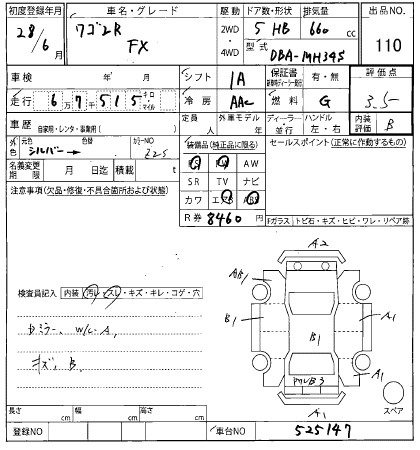 初度登録年月 車名・グレード 駆動 ドア数・形状 排気量 出品NO.
28/6月 ワゴンR FX 2WD 4WD 5 HB 660 cc 110
型式 DBA-MH34S
車検 年 月 シフト IA 保証書 有・無 評価点
走行 6万7千515 キロ・マイル 冷房 AAC 燃料 G 3.5
車歴 自家用・レンタ・事業用( ) 定員 人 外車モデル 年 ディーラー・並行 ハンドル 左・右 内装評価 B
外色 元色 シルバー → 色替 カラーNO Z2S 装備品(純正品に限る) セールスポイント(正常に作動するもの)
PS PW AW
名義変更期限 月 日迄 積載 t SR TV ナビ
注意事項(欠品・修復・不具合箇所および状態) カワ エアB ABS
R券 8460 円 Fガラス トビ石・キズ・ヒビ・ワレ・リペア跡
A2
検査員記入 内装 汚レ・スレ・キズ・キレ・コゲ・穴
B1 B1 A1
W/C A,
キズ, B
A1
A1 スペア
長さ cm 幅 cm 高さ cm
登録NO 車台NO 525147